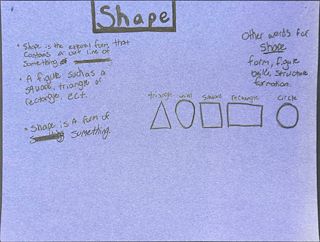 Shape
• Shape is the external form that
Contains or out line of
Something
• A figure such as a
square, triangle or
rectangle, ect.
• Shape is A form of
Something.
Other words for
shape
form, figure
build, structure
formation.
triangle oval square rectangle circle